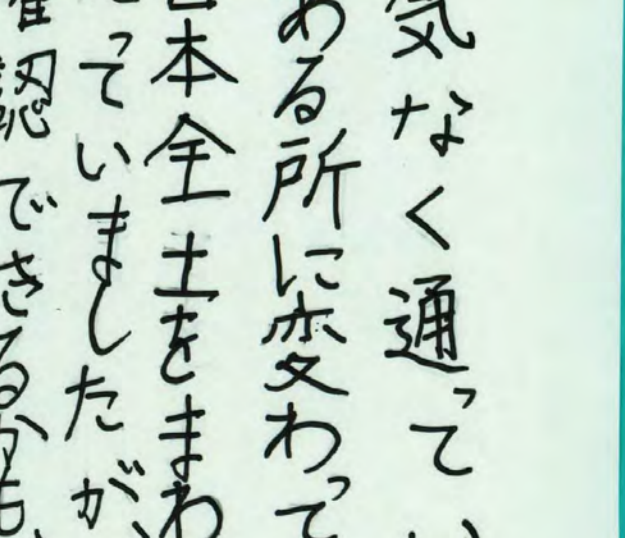 気なく通ってい
ある所に変わって
日本全土をまわ
っていましたが、
確認できるかも